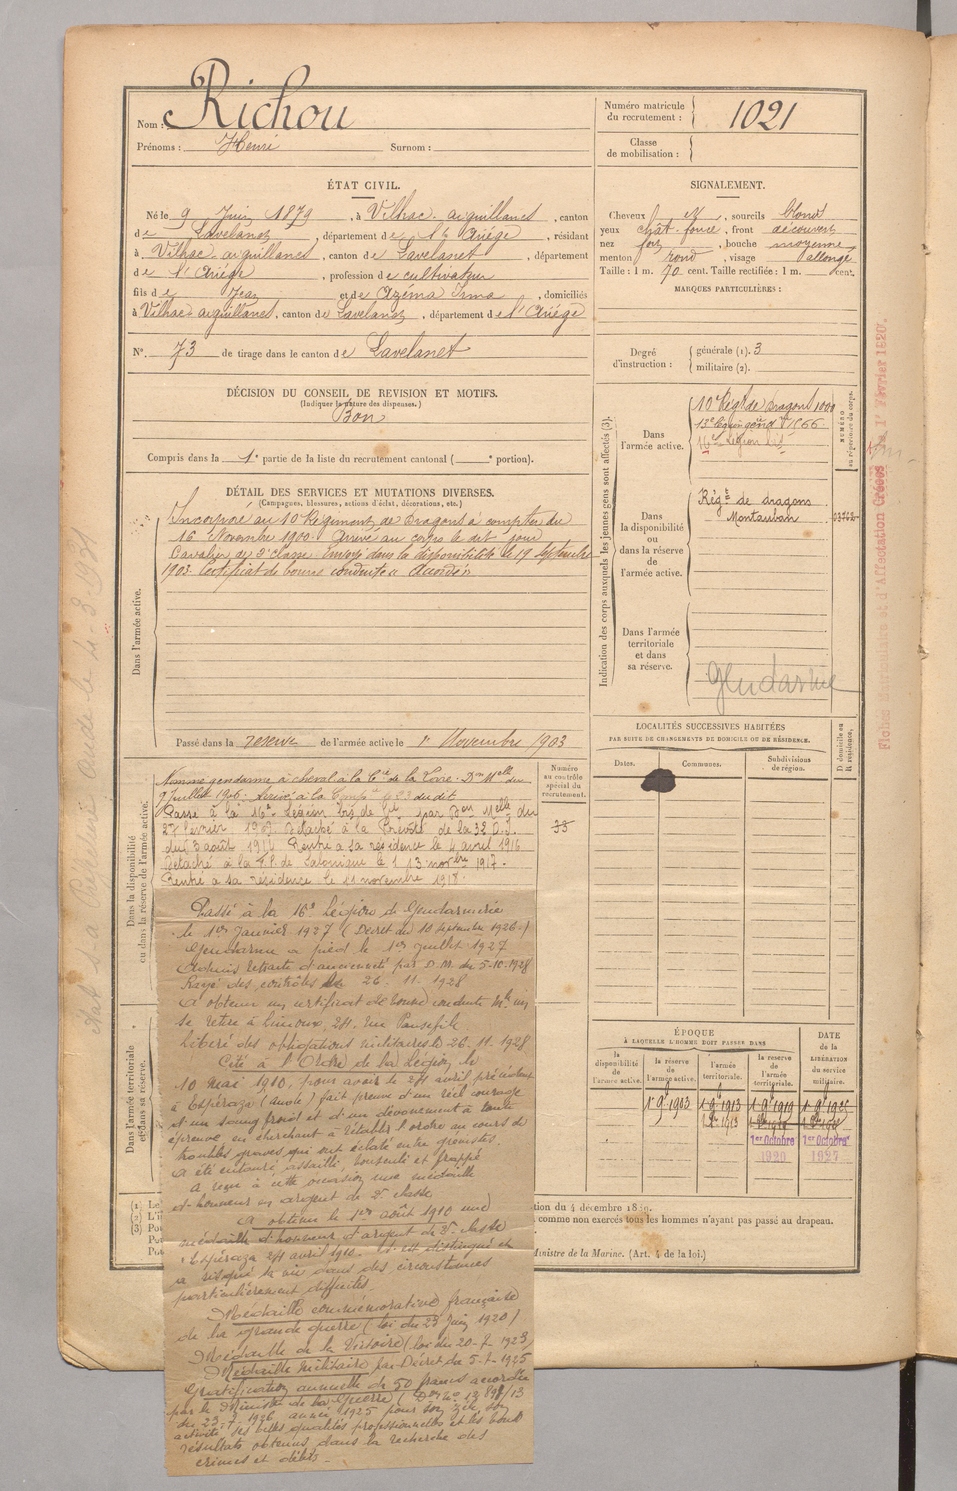 Nom : Richou
Prénoms : Henri Surnom :
Numéro matricule
du recrutement : 1021
Classe
de mobilisation :
ÉTAT CIVIL.
Né le 9 Juin 1879, à Vilhac-aiguillanes, canton
de Lavelanet, département de l'Ariège, résidant
à Vilhac-aiguillanes, canton de Lavelanet, département
de l'Ariège, profession de cultivateur
fils de Jean et de Azéma Irma, domiciliés
à Vilhac-aiguillanes, canton de Lavelanet, département de l'Ariège
N° 73 de tirage dans le canton de Lavelanet
SIGNALEMENT.
Cheveux et, sourcils blonds
yeux chât. foncé, front découvert
nez fort, bouche moyenne
menton rond, visage allongé
Taille : 1 m. 70 cent. Taille rectifiée : 1 m. cent.
MARQUES PARTICULIÈRES :
Degré
d'instruction :
générale (1). 3
militaire (2).
DÉCISION DU CONSEIL DE REVISION ET MOTIFS.
(Indiquer la nature des dispenses.)
Bon
Compris dans la 1e partie de la liste du recrutement cantonal ( e portion).
DÉTAIL DES SERVICES ET MUTATIONS DIVERSES.
(Campagnes, blessures, actions d'éclat, décorations, etc.)
Dans l'armée active.
Incorporé au 10e Régiment de Dragons à compter du
16 Novembre 1900. Arrivé au corps le dit jour
Cavalier de 2e classe. Envoyé dans la disponibilité le 19 septembre
1903. Certificat de bonne conduite « Accordé »
Passé dans la réserve de l'armée active le 1er Novembre 1903
Indication des corps auxquels les jeunes gens sont affectés (3).
Dans
l'armée active.
10e Régt de Dragons
16e Légion bis
NUMÉRO
au répertoire du corps.
Dans
la disponibilité
ou
dans la réserve
de
l'armée active.
Régt de dragons
Montauban
Dans l'armée
territoriale
et dans
sa réserve.
Gendarme
LOCALITÉS SUCCESSIVES HABITÉES
PAR SUITE DE CHANGEMENTS DE DOMICILE OU DE RÉSIDENCE.
Dates.
Communes.
Subdivisions
de région.
D domicile ou
R résidence.
Numéro
au contrôle
spécial du
recrutement.
33
Dans la disponibilité
ou dans la réserve de l'armée active.
Nommé gendarme à cheval à la Cie de la Corse. Don Mlle du
9 Juillet 1906. Arrivé à la Compie le 23 dudit
Passé à la 16e Légion bis de Gie par Don Mlle du
27 février 1907. Détaché à la Prévôté de la 32 D.I.
du 3 août 1914. Rentré à sa résidence le 4 avril 1916
Détaché à la F.P. de Salonique le 13 novbre 1917.
Rentré à sa résidence le 11 novembre 1918.
Dans l'armée territoriale
et dans sa réserve.
Passé à la 16e Légion de Gendarmerie
le 1er Janvier 1927 (Décret du 10 septembre 1926.)
Gendarme à pied le 1er Juillet 1927
Admis retraite d'ancienneté par D.M. du 5-10-1928
Rayé des contrôles le 26. 11. 1928
A obtenu un certificat de bonne conduite
se retire à Limoux, 24, rue
Libéré des obligations militaires le 26. 11. 1928
Cité à l'Ordre de la Légion, le
10 mai 1910, pour avoir le 24 avril précédent
à Espéraza (Aude) fait preuve d'un réel courage
d'un sang froid et d'un dévouement à toute
épreuve, en cherchant à rétablir l'ordre au cours de
troubles graves qui ont éclaté entre grévistes.
A été entouré, assailli, bousculé et frappé
A reçu à cette occasion une médaille
d'honneur en argent de 2e classe
A obtenu le 1er août 1910 une
médaille d'honneur d'argent de 2e classe
Espéraza 24 avril 1910. S'est distingué et
a risqué sa vie dans des circonstances
particulièrement difficiles.
Médaille commémorative française
de la grande guerre (loi du 23 Juin 1920)
Médaille de la Victoire (loi du 20-7-1922)
Médaille militaire par Décret du 5-7-1925
Gratification annuelle de 50 francs accordée
par le Ministre de la Guerre
du 23. 7. 1926 année 1925 pour son zèle, son
activité, ses belles qualités professionnelles et les bons
résultats obtenus dans la recherche des
crimes et délits.
ÉPOQUE
À LAQUELLE L'HOMME DOIT PASSER DANS
la
disponibilité
de
l'armée active.
la réserve
de
l'armée active.
l'armée
territoriale.
la réserve
de
l'armée
territoriale.
DATE
de la
LIBÉRATION
du service
militaire.
1 9bre 1903 1 9bre 1913 1 9bre 1919 1 9bre 1925
1er Octobre 1er Octobre
1920 1927
(1) Le
(2) L'i
(3) Pou
Pou
Pou
tion du 4 décembre 1889.
comme non exercés tous les hommes n'ayant pas passé au drapeau.
Ministre de la Marine. (Art. 4 de la loi.)